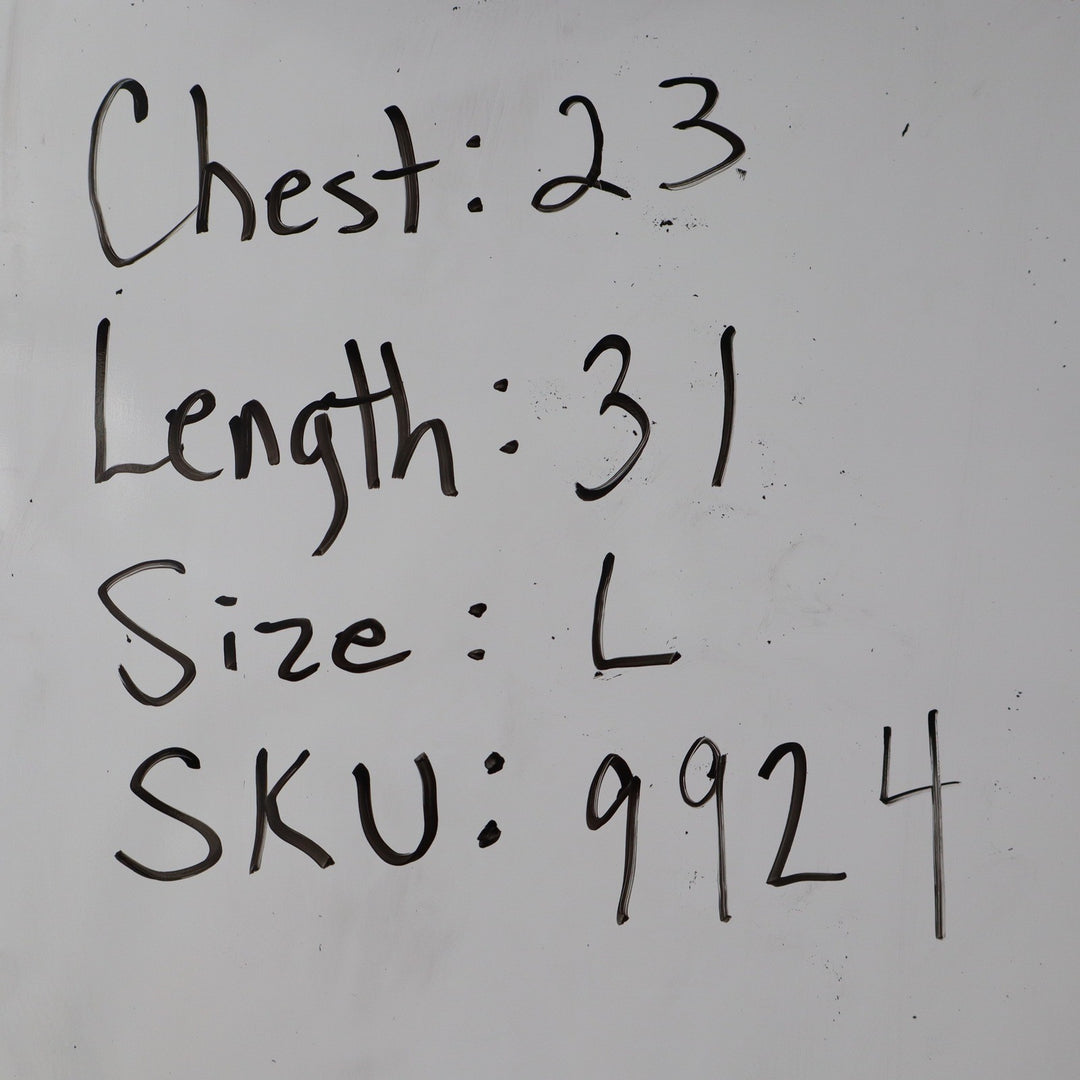 Chest: 23
Length: 31
Size: L
SKU: 9924